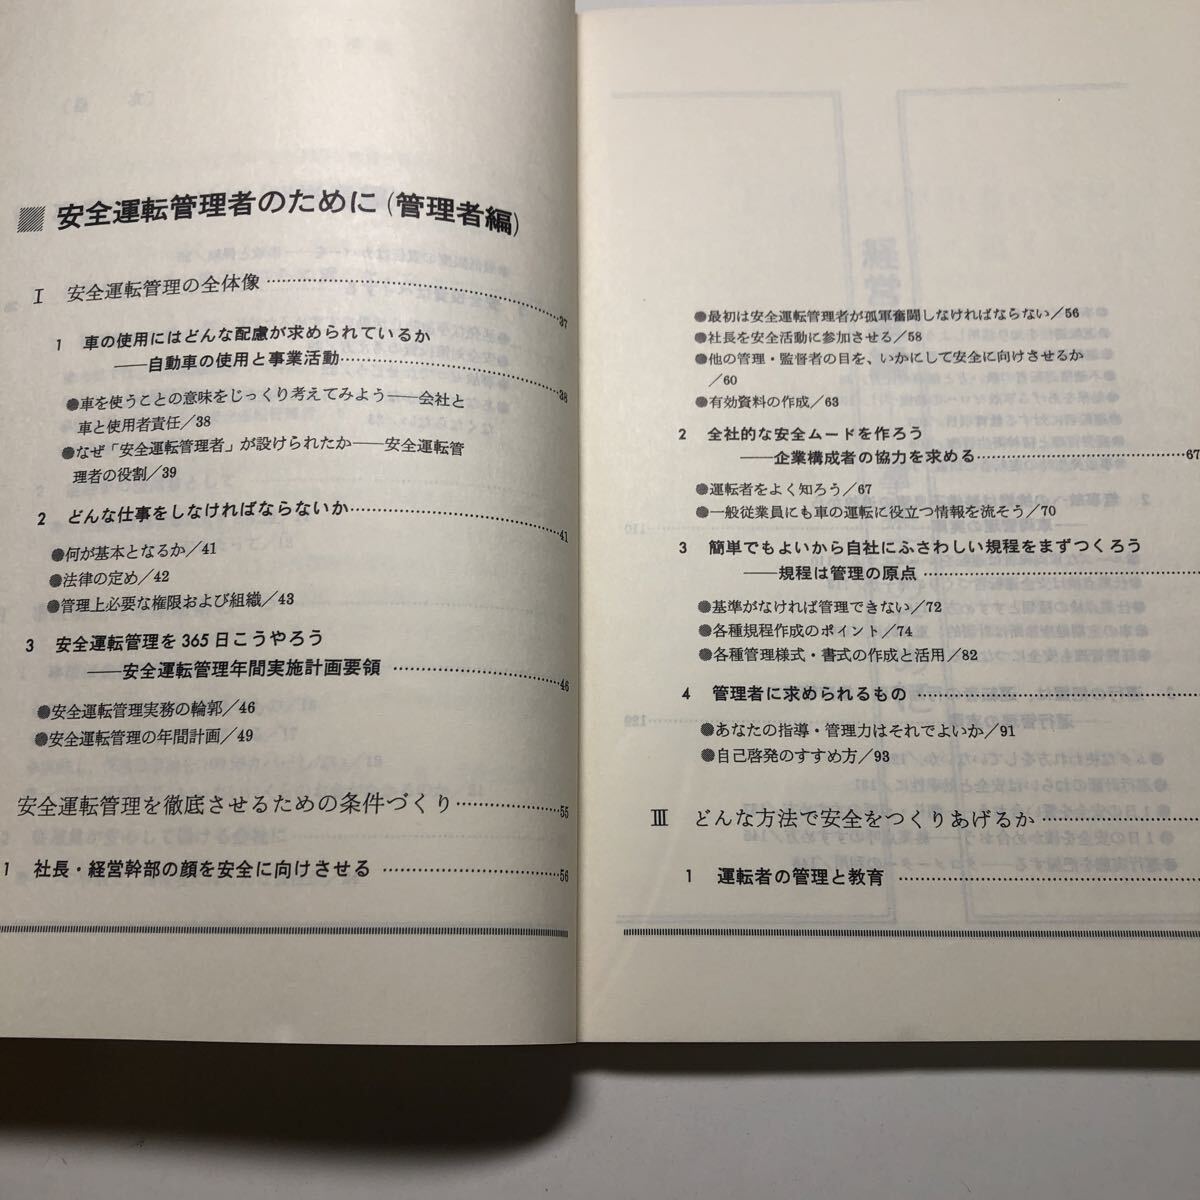 安全運転管理者のために(管理者編)
Ⅰ 安全運転管理の全体像……37
1 車の使用にはどんな配慮が求められているか
——自動車の使用と事業活動……38
●車を使うことの意味をじっくり考えてみよう——会社と
車と使用者責任/38
●なぜ「安全運転管理者」が設けられたか——安全運転管
理者の役割/39
2 どんな仕事をしなければならないか……41
●何が基本となるか/41
●法律の定め/42
●管理上必要な権限および組織/43
3 安全運転管理を365日こうやろう
——安全運転管理年間実施計画要領……46
●安全運転管理実務の輪郭/46
●安全運転管理の年間計画/49
安全運転管理を徹底させるための条件づくり……55
1 社長・経営幹部の顔を安全に向けさせる……56
●最初は安全運転管理者が孤軍奮闘しなければならない/56
●社長を安全活動に参加させる/58
●他の管理・監督者の目を、いかにして安全に向けさせるか
/60
●有効資料の作成/63
2 全社的な安全ムードを作ろう
——企業構成者の協力を求める……67
●運転者をよく知ろう/67
●一般従業員にも車の運転に役立つ情報を流そう/70
3 簡単でもよいから自社にふさわしい規程をまずつくろう
——規程は管理の原点……
●基準がなければ管理できない/72
●各種規程作成のポイント/74
●各種管理様式・書式の作成と活用/82
4 管理者に求められるもの……
●あなたの指導・管理力はそれでよいか/91
●自己啓発のすすめ方/93
Ⅲ どんな方法で安全をつくりあげるか……
1 運転者の管理と教育……